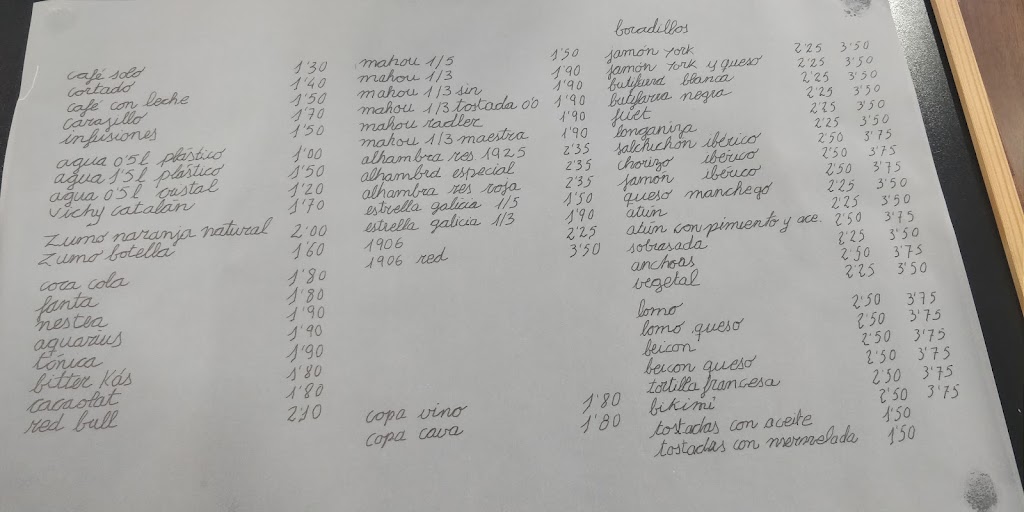 café solo 1'30
cortado 1'40
café con leche 1'50
carajillo 1'70
infusiones 1'50
agua 0'5l plástico 1'00
agua 1'5l plástico 1'50
agua 0'5l cristal 1'20
vichy catalán 1'70
zumo naranja natural 2'00
zumo botella 1'60
coca cola 1'80
fanta 1'80
nestea 1'90
aquarius 1'90
tónica 1'90
bitter kás 1'80
cacaolat 1'80
red bull 2'10
mahou 1/5 1'50
mahou 1/3 1'90
mahou 1/3 sin 1'90
mahou 1/3 tostada 0'0 1'90
mahou radler 1'90
mahou 1/3 maestra 1'90
alhambra res 1925 2'35
alhambra especial 2'35
alhambra res roja 2'35
estrella galicia 1/5 1'50
estrella galicia 1/3 1'90
1906 2'25
1906 red 3'50
copa vino 1'80
copa cava 1'80
bocadillos
jamón york 2'25 3'50
jamón york y queso 2'25 3'50
butifarra blanca 2'25 3'50
butifarra negra 2'25 3'50
fuet 2'25 3'50
longaniza 2'25 3'50
salchichón ibérico 2'50 3'75
chorizo ibérico 2'50 3'75
jamón ibérico 2'50 3'75
queso manchego 2'25 3'50
atún 2'25 3'50
atún con pimiento y ace. 2'50 3'75
sobrasada 2'25 3'50
anchoas 2'50 3'75
vegetal 2'25 3'50
lomo 2'50 3'75
lomo queso 2'50 3'75
beicon 2'50 3'75
beicon queso 2'50 3'75
tortilla francesa 2'50 3'75
bikimi 2'50 3'75
tostadas con aceite 1'50
tostadas con mermelada 1'50